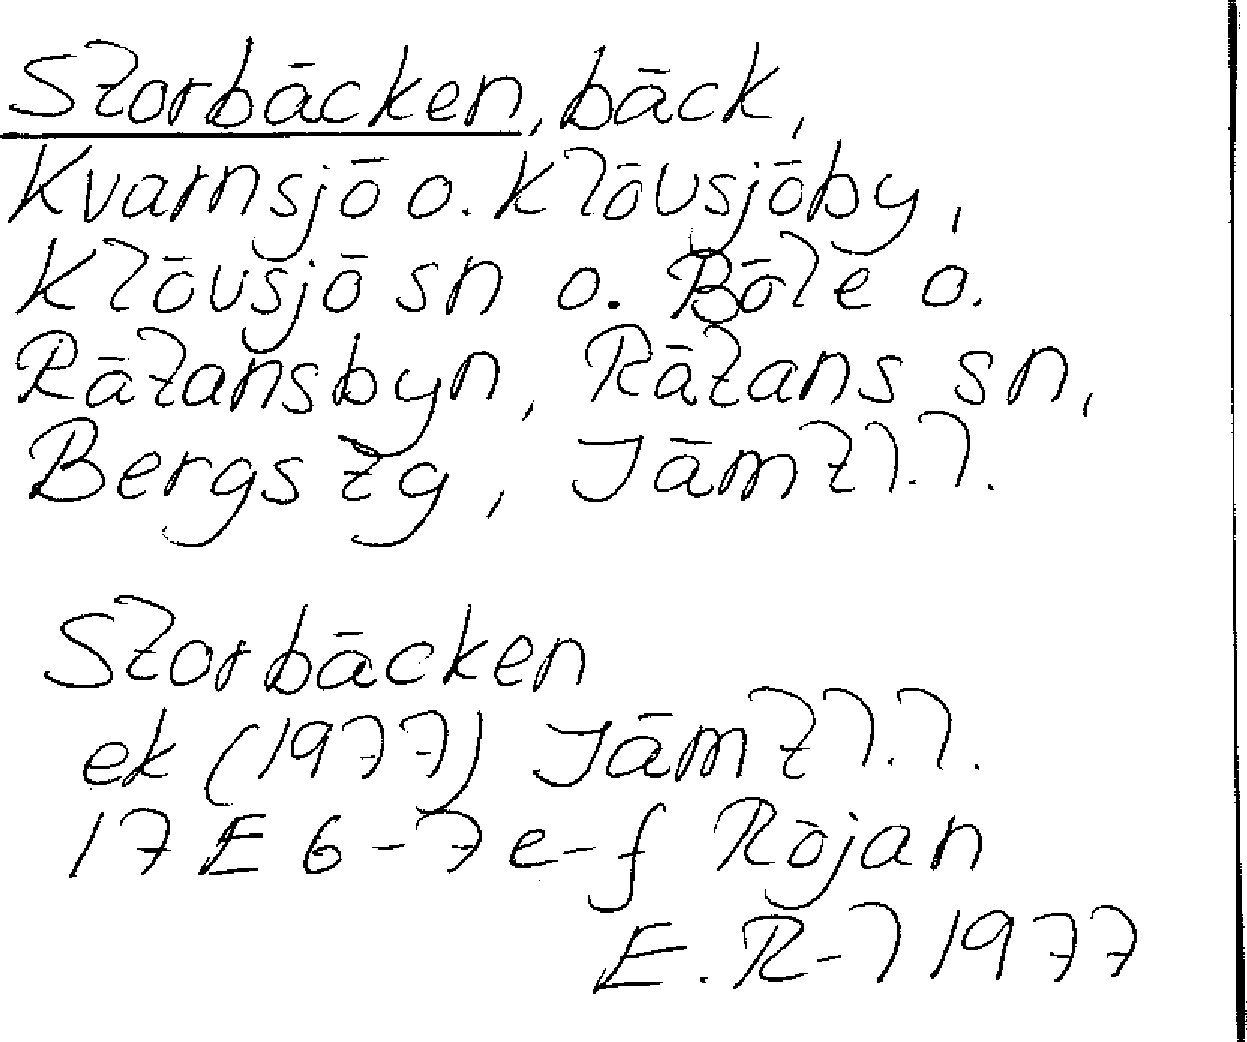 Storbäcken, bäck,
Kvarnsjö o. Klövsjöby,
Klövsjö sn o. Böle o.
Rätansbyn, Rätans sn,
Bergs tg, Jämtl.l.
Storbäcken
ek (1977) Jämtl.l.
17 E 6-7 e-f Röjan
E. R-l 1977